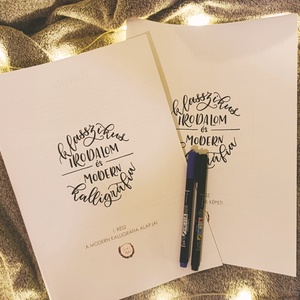 klasszikus
IRODALOM
és
MODERN
kalligráfia
I. RÉSZ
A MODERN KALLIGRÁFIA ALAPJAI
klasszikus
IRODALOM
és
MODERN
kalligráfia